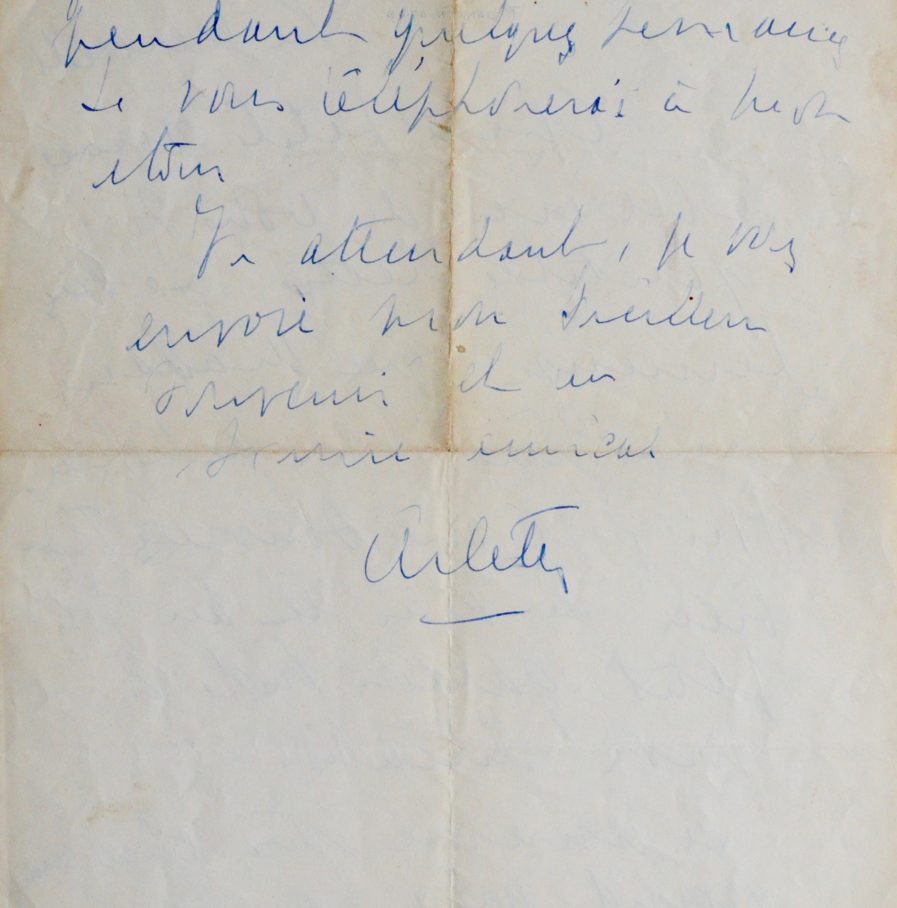 pendant quelques semaines
Je vous téléphonerai à mon
retour
En attendant, je vous
envoie mon meilleur
souvenir et un
sourire amical
Arletty